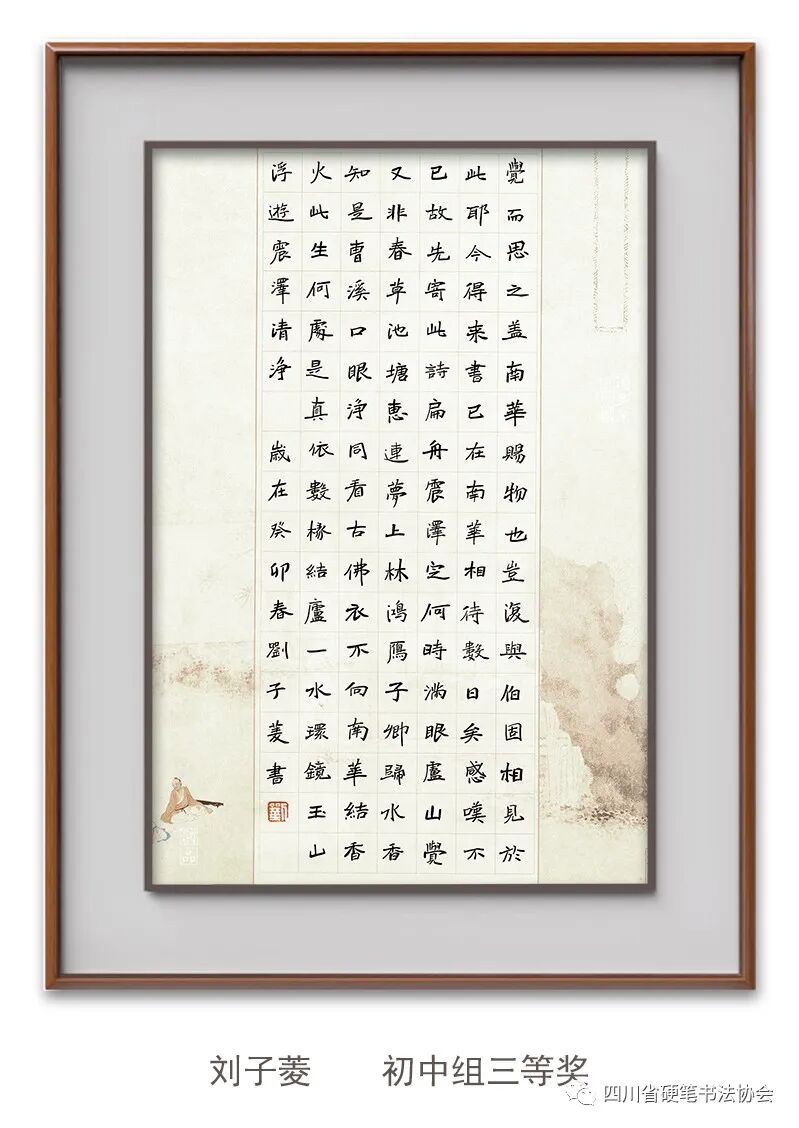 覺而思之盖南華賜物也豈復與伯固相見於
此耶今得来書已在南華相待數日矣感嘆不
已故先寄此詩扁舟震澤定何時滿眼廬山覺
又非春草池塘惠連夢上林鴻鴈子卿歸水香
知是曹溪口眼浄同看古佛衣不向南華結香
火此生何處是真依數椽結廬一水環鏡玉山
浮遊震澤清浄 歲在癸卯春劉子菱書
刘子菱 初中组三等奖
四川省硬笔书法协会